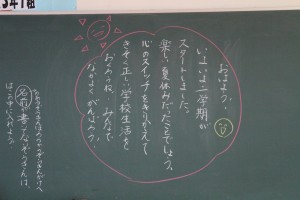 おはよう。
いよいよ二学期が
スタートしました。
楽しい夏休みだったことでしょう。
心のスイッチをきりかえて
きそく正しい学校生活を
おくろうね。みんなで
なかよくがんばろう。
名前が書いてない